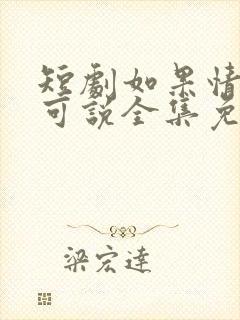 短劇如果情
可說全集免
梁宏達